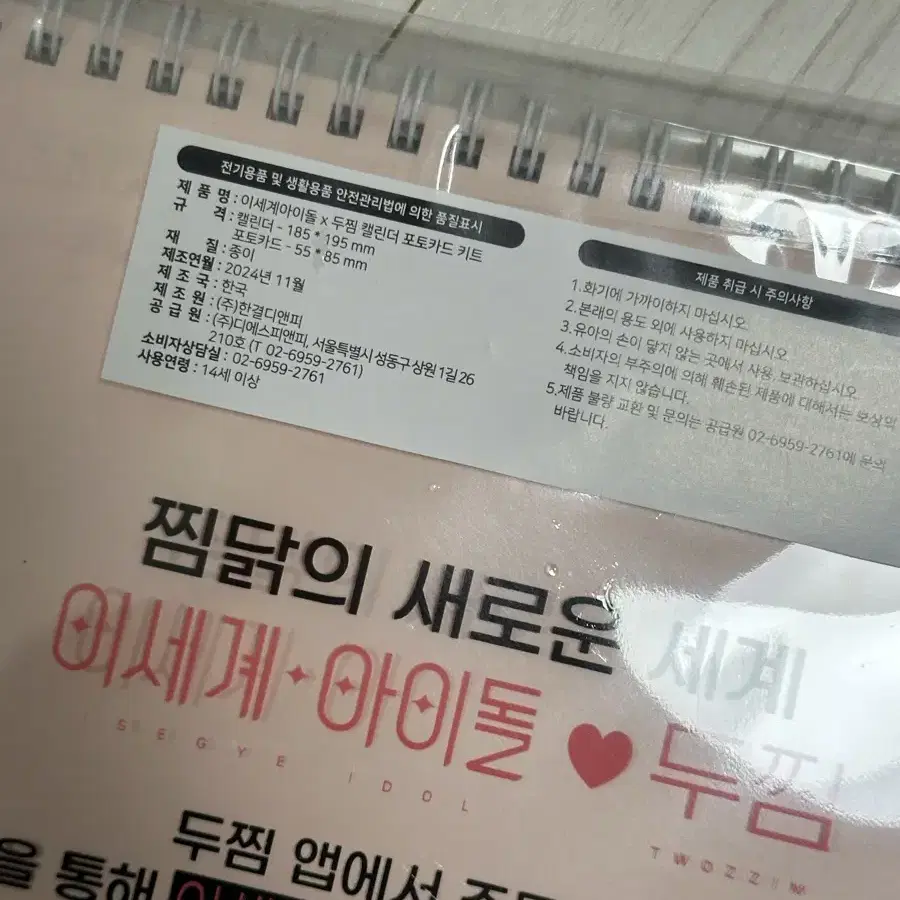 전기용품 및 생활용품 안전관리법에 의한 품질표시
제 품 명 : 이세계아이돌 x 두찜 캘린더 포토카드 키트
규 격 : 캘린더 - 185 * 195 mm
포토카드 - 55 * 85 mm
재 질 : 종이
제조연월 : 2024년 11월
제 조 국 : 한국
제 조 원 : (주)한결디앤피
공 급 원 : (주)디에스피앤피, 서울특별시 성동구 상원 1길 26
210호 (T 02-6959-2761)
소비자상담실 : 02-6959-2761
사용연령 : 14세 이상
제품 취급 시 주의사항
1.화기에 가까이하지 마십시오.
2.본래의 용도 외에 사용하지 마십시오.
3.유아의 손이 닿지 않는 곳에서 사용.보관하십시오.
4.소비자의 부주의에 의해 훼손된 제품에 대해서는 보상및
책임을 지지 않습니다.
5.제품 불량 교환 및 문의는 공급원 02-6959-2761에 문의
바랍니다.
찜닭의 새로운 세계
이세계아이돌 ♥ 두찜
SEGYE IDOL
TWOZZIM
두찜 앱에서
을 통해